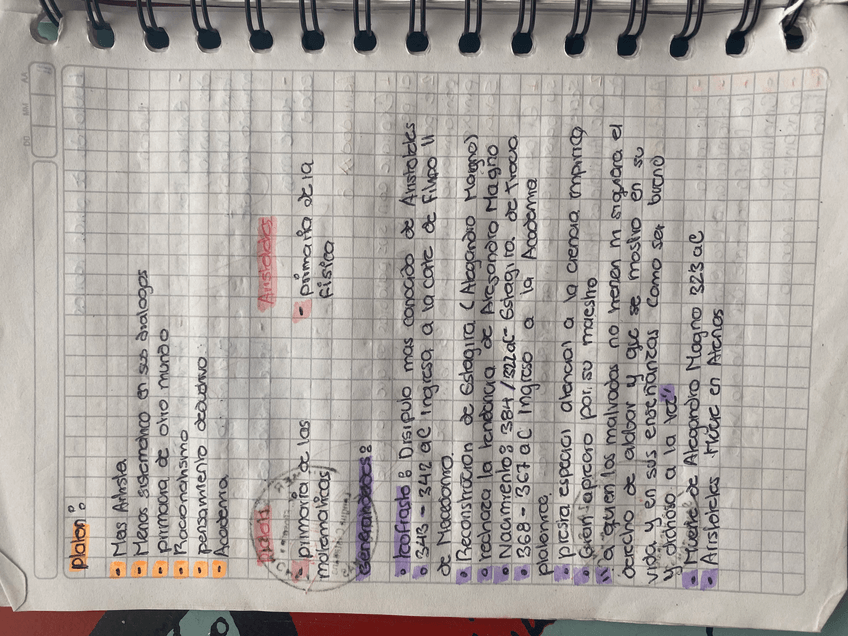 Platon:
• Mas Artista
• Menos sistematico en sus dialogos
• primacia de otro mundo
• Racionalismo
• pensamiento deductivo
• Academia
- Aristoteles
- primaria de las
matematicas
- primaria de la
fisica
Generalidades:
• Teofrasto: Disipulo mas conocido de Aristoteles
• 343 - 342 aC Ingresa a la corte de Filipo II
de Macedonia.
• Reconstrucción de Estagira (Alejandro Magno)
• rechaza la tendencia de Alejandro Magno
• Nacimiento: 384/322 aC - Estagira, de Tracia
• 368 - 367 aC Ingreso a la Academia
platonica.
• presta especial atencion a la ciencia empirica
• Gran aprecio por su maestro
"a quien los malvados no tienen ni siquiera el
derecho de alabar y que se mostro en su
vida y en sus enseñanzas como ser bueno
y dichoso a la vez"
• Muerte de Alejandro Magno 323 aC
• Aristoteles Muere en Atenas